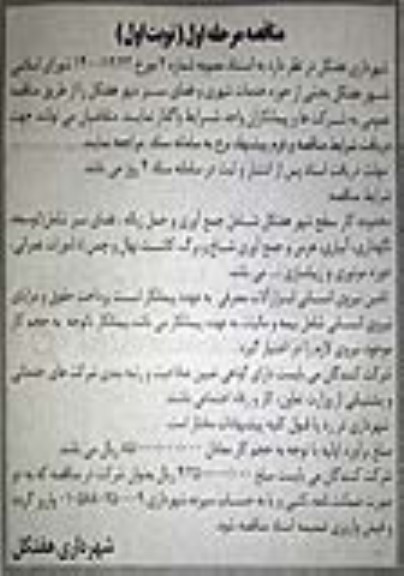 مناقصه مرحله اول (نوبت اول)
شهرداری هفتکل در نظر دارد به استناد مصوبه شماره ۲ مورخ شورای اسلامی
شهر هفتکل بخشی از حوزه خدمات شهری و فضای سبز شهر هفتکل را از طریق مناقصه
عمومی به شرکت ها و پیمانکاران واجد شرایط واگذار نمایند. متقاضیان می توانند جهت
دریافت شرایط مناقصه و فرم پیشنهاد نرخ به سامانه ستاد مراجعه نمایند.
مهلت دریافت اسناد پس از انتشار و ثبت در سامانه ستاد روز می باشد.
شرایط مناقصه
محدوده کار سطح شهر هفتکل شامل جمع آوری و حمل زباله، فضای سبز شامل (توسعه،
نگهداری، آبیاری، هرس و جمع آوری شاخ و برگ، کاشت نهال و چمن)، امورات عمرانی،
حوزه موتوری و زیباسازی ... می باشد.
تامین نیروی انسانی، ابزارآلات مصرفی به عهده پیمانکار است. پرداخت حقوق و مزایای
نیروی انسانی شامل بیمه و مالیات به عهده پیمانکار می باشد. پیمانکار باتوجه به حجم کار
موجود نیروی لازم را در اختیار گیرد.
شرکت کنندگان می بایست دارای گواهی تعیین صلاحیت و رتبه بندی شرکت های خدماتی
و پشتیبانی از وزارت تعاون، کار و رفاه اجتماعی باشند.
شهرداری در رد یا قبول کلیه پیشنهادات مختار است.
مبلغ برآورد اولیه با توجه به حجم کار معادل ریال می باشد.
شرکت کنندگان می بایست مبلغ ریال بعنوان شرکت در مناقصه که به دو
صورت ضمانت نامه کتبی و یا به حساب سپرده شهرداری واریز گردد
و فیش واریزی ضمیمه اسناد مناقصه شود.
شهرداری هفتکل